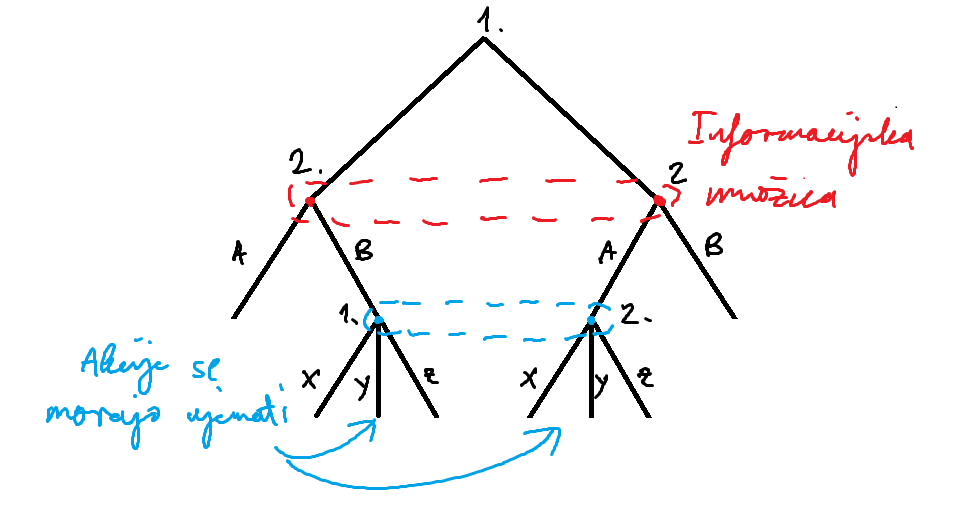 1.
Informacijska
množica
2.
2
A
B
A
B
1.
2.
Akcije se
morajo ujemati
x
y
z
x
y
z